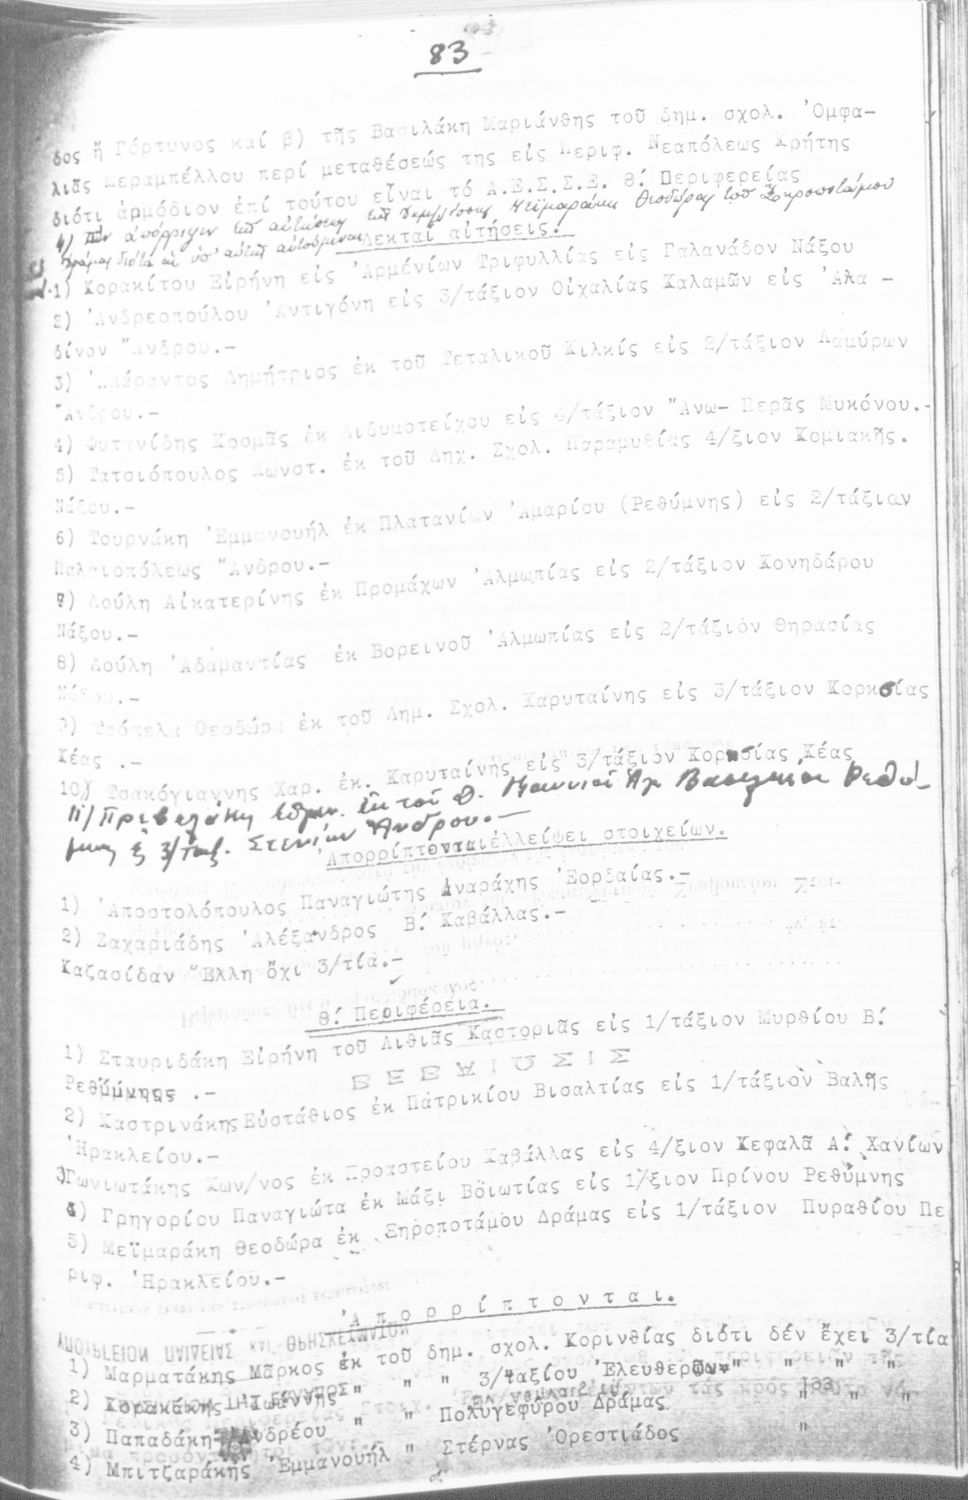 83
δος ἤ Γόρτυνος καί β) τῆς Βασιλάκη Μαριάνθης τοῦ δημ. σχολ. Ὀμφα-
λιᾶς Μεραμπέλλου περί μεταθέσεώς της εἰς Περιφ. Νεαπόλεως Κρήτης
διότι ἁρμόδιον ἐπί τούτου εἶναι τό Α.Ε.Σ.Σ.Ε. Θ΄ Περιφερείας
γ) Τήν ἀπόρριψιν τῆς αἰτήσεως τῆς δημ/σσης Μεϊμαράκη Θεοδώρας τοῦ Ξηροποτάμου
Δράμας διότι αἱ ὑπ' αὐτῆς αἰτούμεναι
Δεκταί αἰτήσεις.
1) Κορακίτου Εἰρήνη εἰς Ἀρμένίων Τριφυλλίας εἰς Γαλανάδον Νάξου
2) Ἀνδρεοπούλου Ἀντιγόνη εἰς 3/τάξιον Οἰχαλίας Καλαμῶν εἰς Ἀλα -
δίνον Ἄνδρου.-
3) Ἀμάραντος Δημήτριος ἐκ τοῦ Τεταλικοῦ Κιλκίς εἰς 2/τάξιον Λαμύρων
Ἄνδρου.-
4) Φυτανίδης Κοσμᾶς ἐκ Διδυμοτείχου εἰς 4/τάξιον Ἄνω- Μερᾶς Μυκόνου.-
5) Τατσιόπουλος Κωνστ. ἐκ τοῦ Δηχ. Σχολ. Παραμυθίας 4/ξιον Κομιακῆς.
Νάξου.-
6) Τουρνάκη Ἐμμανουήλ ἐκ Πλατανίων Ἀμαρίου (Ρεθύμνης) εἰς 2/τάξιον
Παλαιοπόλεως Ἄνδρου.-
7) Δούλη Αἰκατερίνης ἐκ Προμάχων Ἀλμωπίας εἰς 2/τάξιον Κονηδάρου
Νάξου.-
8) Δούλη Ἀδαμαντίας ἐκ Βορεινοῦ Ἀλμωπίας εἰς 2/τάξιόν Θηρασίας
Νάξου.-
9) Τσόπελα Θεοδώρα ἐκ τοῦ Δημ. Σχολ. Καρυταίνης εἰς 3/τάξιον Κορησίας
Κέας .-
10) Τσακόγιαννης Χαρ. ἐκ. Καρυταίνης εἰς 3/τάξιον Κορησίας Κέας
11/ Πρεβελάκη ἐκ τοῦ Δ. Ἁγ. Βασιλείου Ρεθύ-
μνης ἐ 3/ταξ. Στενιῶν Ἄνδρου.-
Ἀπορρίπτονται ἐλλείψει στοιχείων.
1) Ἀποστολόπουλος Παναγιώτης Ἀναράχης Ἐορδαίας.-
2) Ζαχαριάδης Ἀλέξανδρος Β΄ Καβάλλας.-
Καζασίδαν Ἕλλη ὄχι 3/τία.-
Θ΄ Περιφέρεια.
1) Σταυριδάκη Εἰρήνη τοῦ Λιθιᾶς Καστοριᾶς εἰς 1/τάξιον Μυρθίου Β΄
Ρεθύμνης .-
ΒΕΒΑΙΩΣΙΣ
2) Καστρινάκης Εὐστάθιος ἐκ Πατρικίου Βισαλτίας εἰς 1/τάξιον Βαλῆς
Ἡρακλείου.-
3) Γωνιωτάκης Κων/νος ἐκ Προαστείου Καβάλλας εἰς 4/ξιον Κεφαλᾶ Α΄ Χανίων
4) Γρηγορίου Παναγιώτα ἐκ Μάζι Βοιωτίας εἰς 1/ξιον Πρίνου Ρεθύμνης
5) Μεϊμαράκη Θεοδώρα ἐκ Ξηροποτάμου Δράμας εἰς 1/τάξιον Πυραθίου Πε
ριφ. Ἡρακλείου.-
Ἀπορρίπτονται.
ΥΠΟΥΡΓΕΙΟΝ ΠΑΙΔΕΙΑΣ ΚΑΙ ΘΡΗΣΚΕΥΜΑΤΩΝ
1) Μαρματάκης Μᾶρκος ἐκ τοῦ δημ. σχολ. Κορινθίας διότι δέν ἔχει 3/τία
2) Κορακάκης Ἰωάννης " " " 3/ταξίου Ἐλευθερῶν " " " "
3) Παπαδάκη Ἀνδρέου " " Πολυγεφύρου Δράμας " " "
4) Μπιτζαράκης Ἐμμανουήλ " Στέρνας Ὀρεστιάδος "